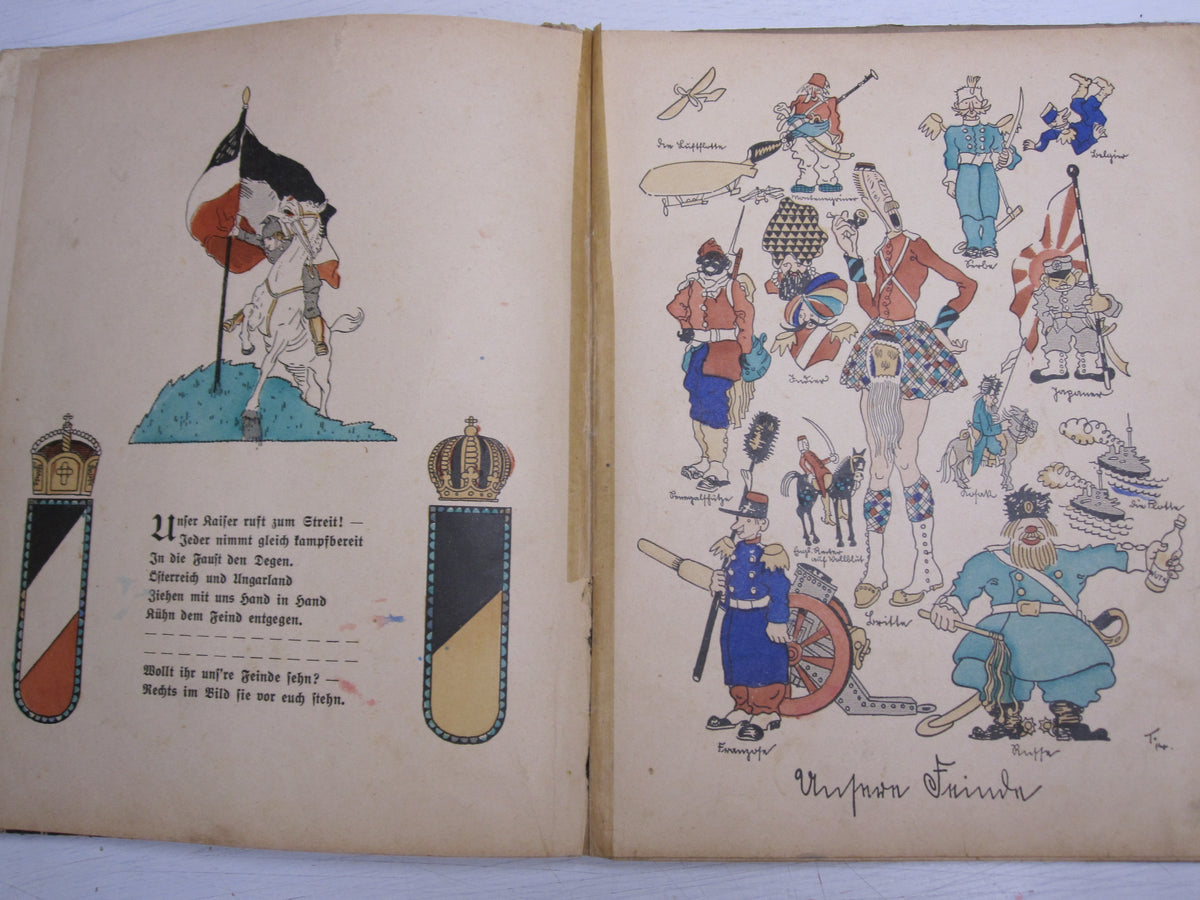 Unser Kaiser ruft zum Streit! —
Jeder nimmt gleich kampfbereit
In die Faust den Degen.
Österreich und Ungarland
Ziehen mit uns Hand in Hand
Kühn dem Feind entgegen.
Wollt ihr uns're Feinde sehn? —
Rechts im Bild sie vor euch stehn.
Die Luftflotte
Montenegriner
Serbe
Belgier
Indier
Japaner
Senegalschütze
Engl. Reiter
auf Vollblut
Kosak
Die Flotte
Britte
Franzose
Russe
Unsere Feinde